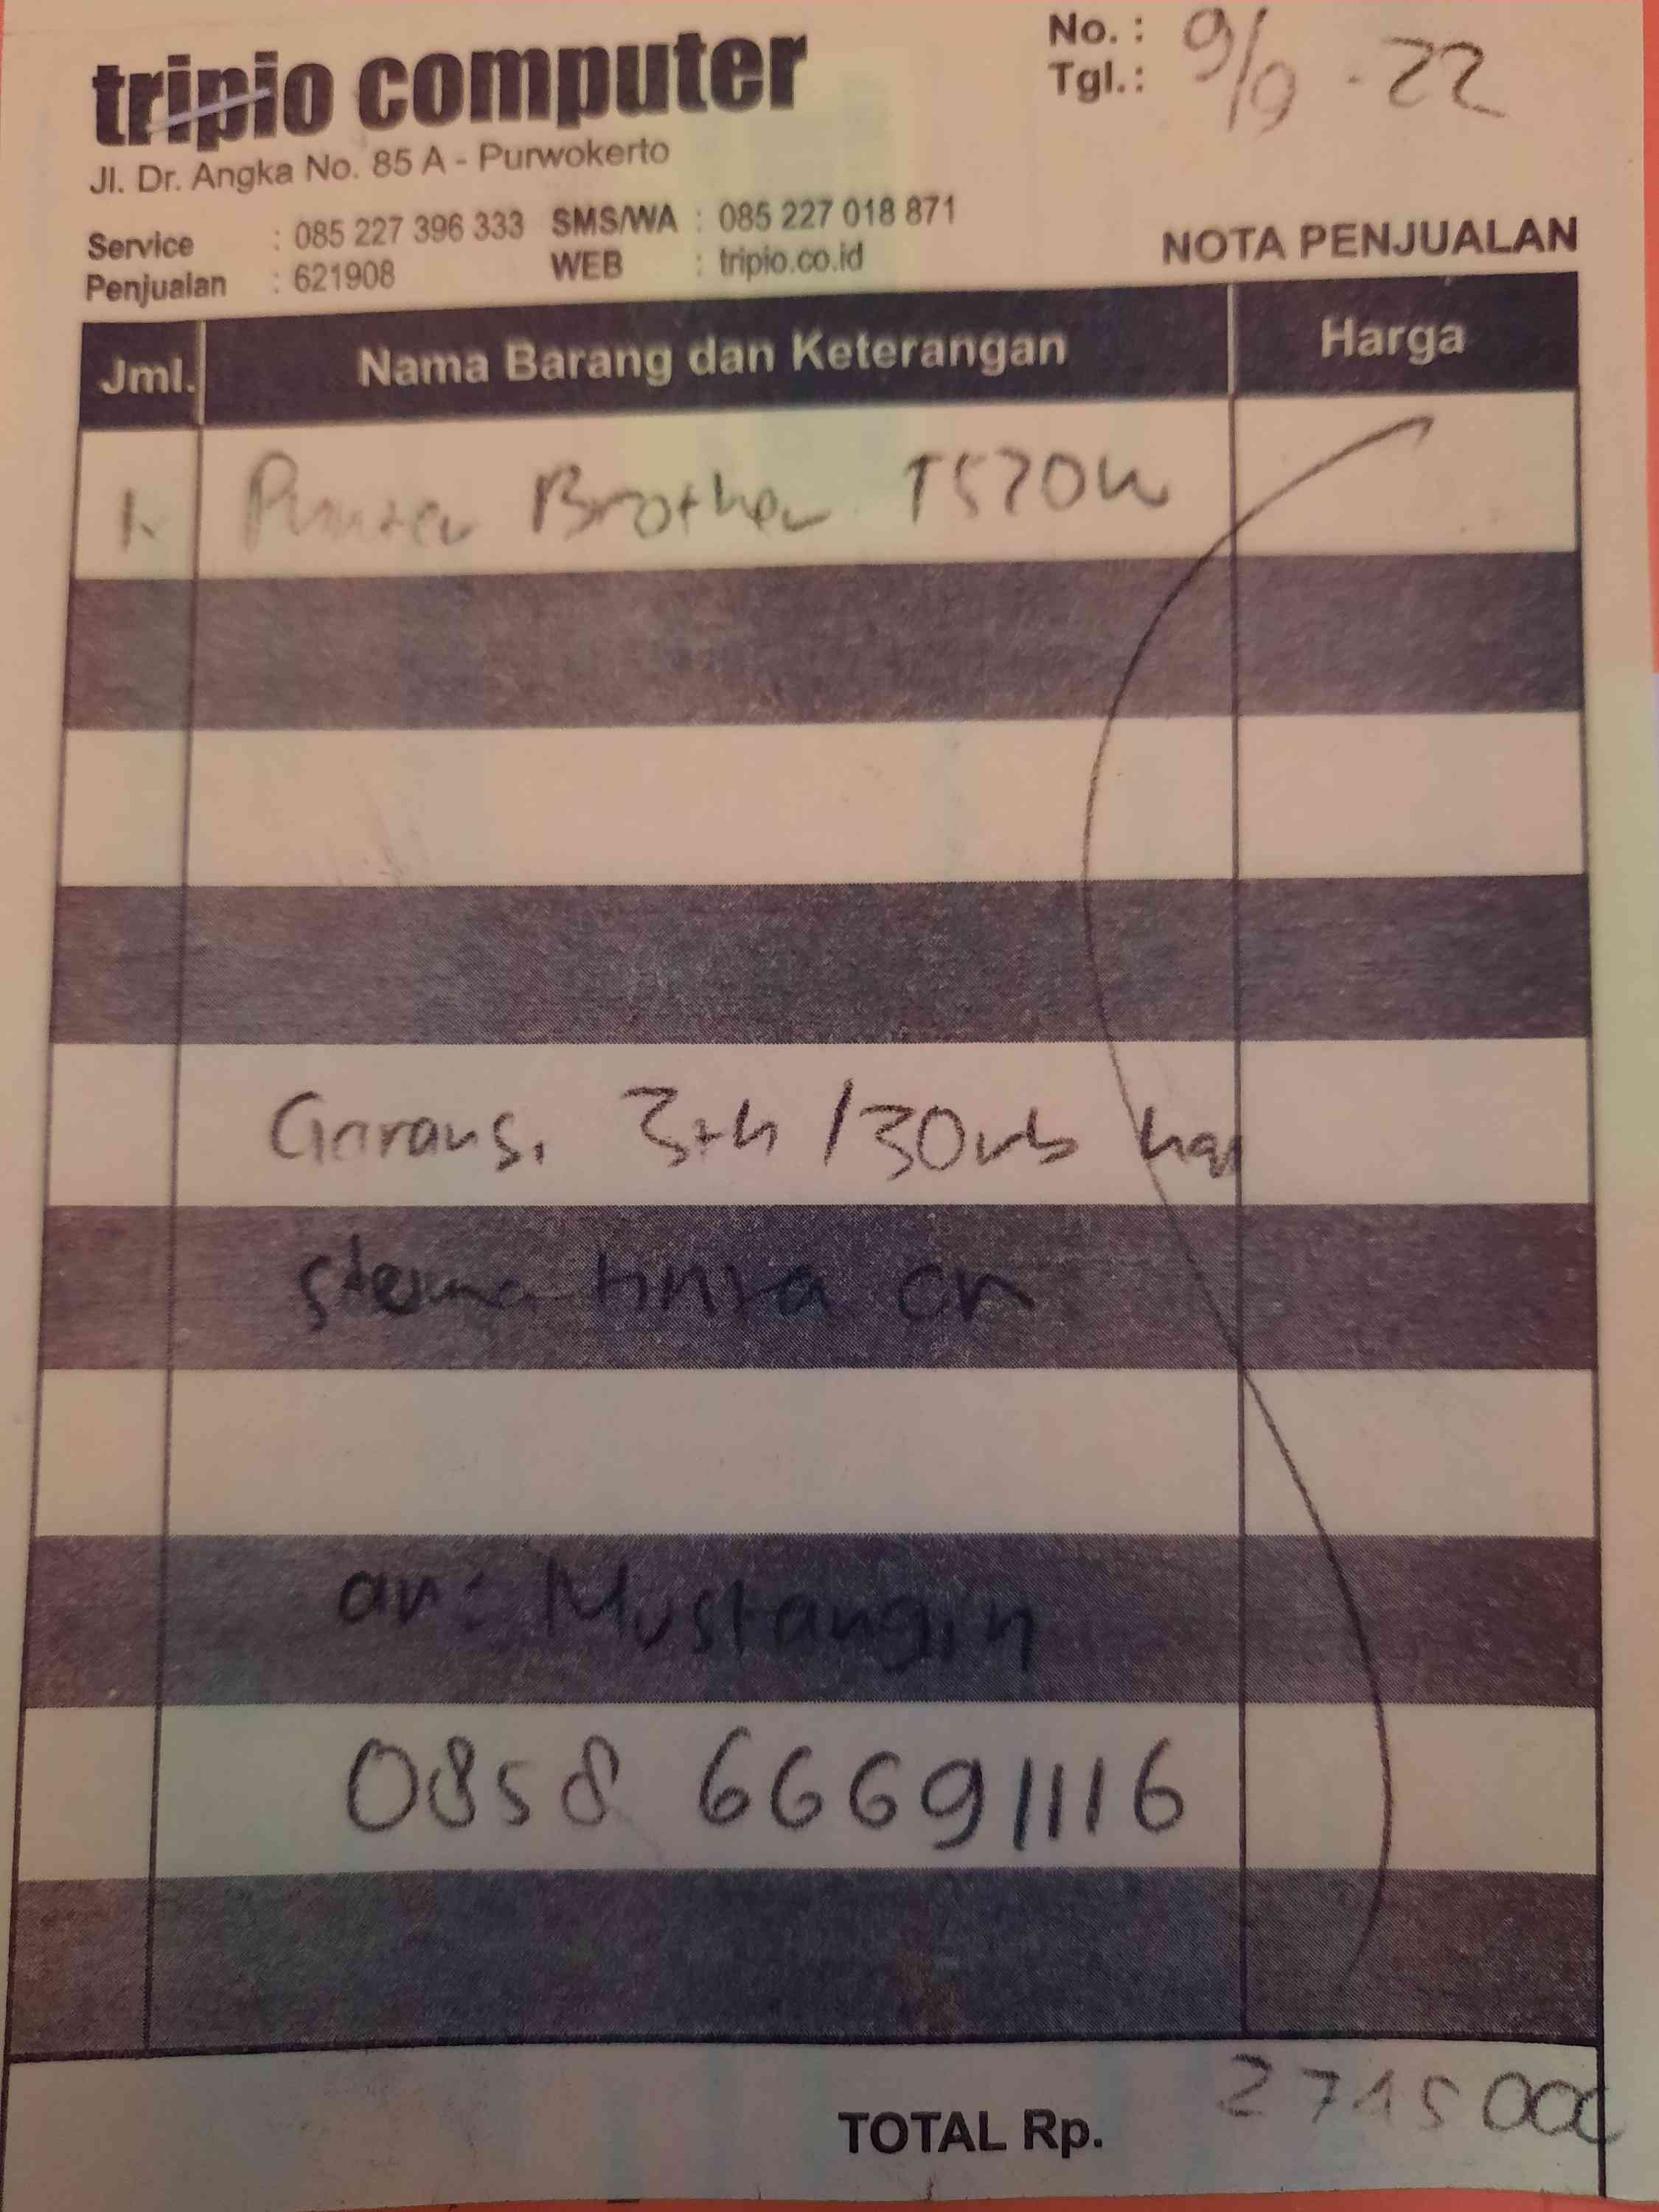 tripio computer
Jl. Dr. Angka No. 85 A - Purwokerto
Service : 085 227 396 333 SMS/WA : 085 227 018 871
Penjualan : 621908 WEB : tripio.co.id
No. :
Tgl. : 9/9 - 22
NOTA PENJUALAN
Jml. Nama Barang dan Keterangan Harga
1 Printer Brother T520W
Garansi 3th / 30rb hal
tinta
an: Mustangin
0858 66691116
TOTAL Rp. 2715000